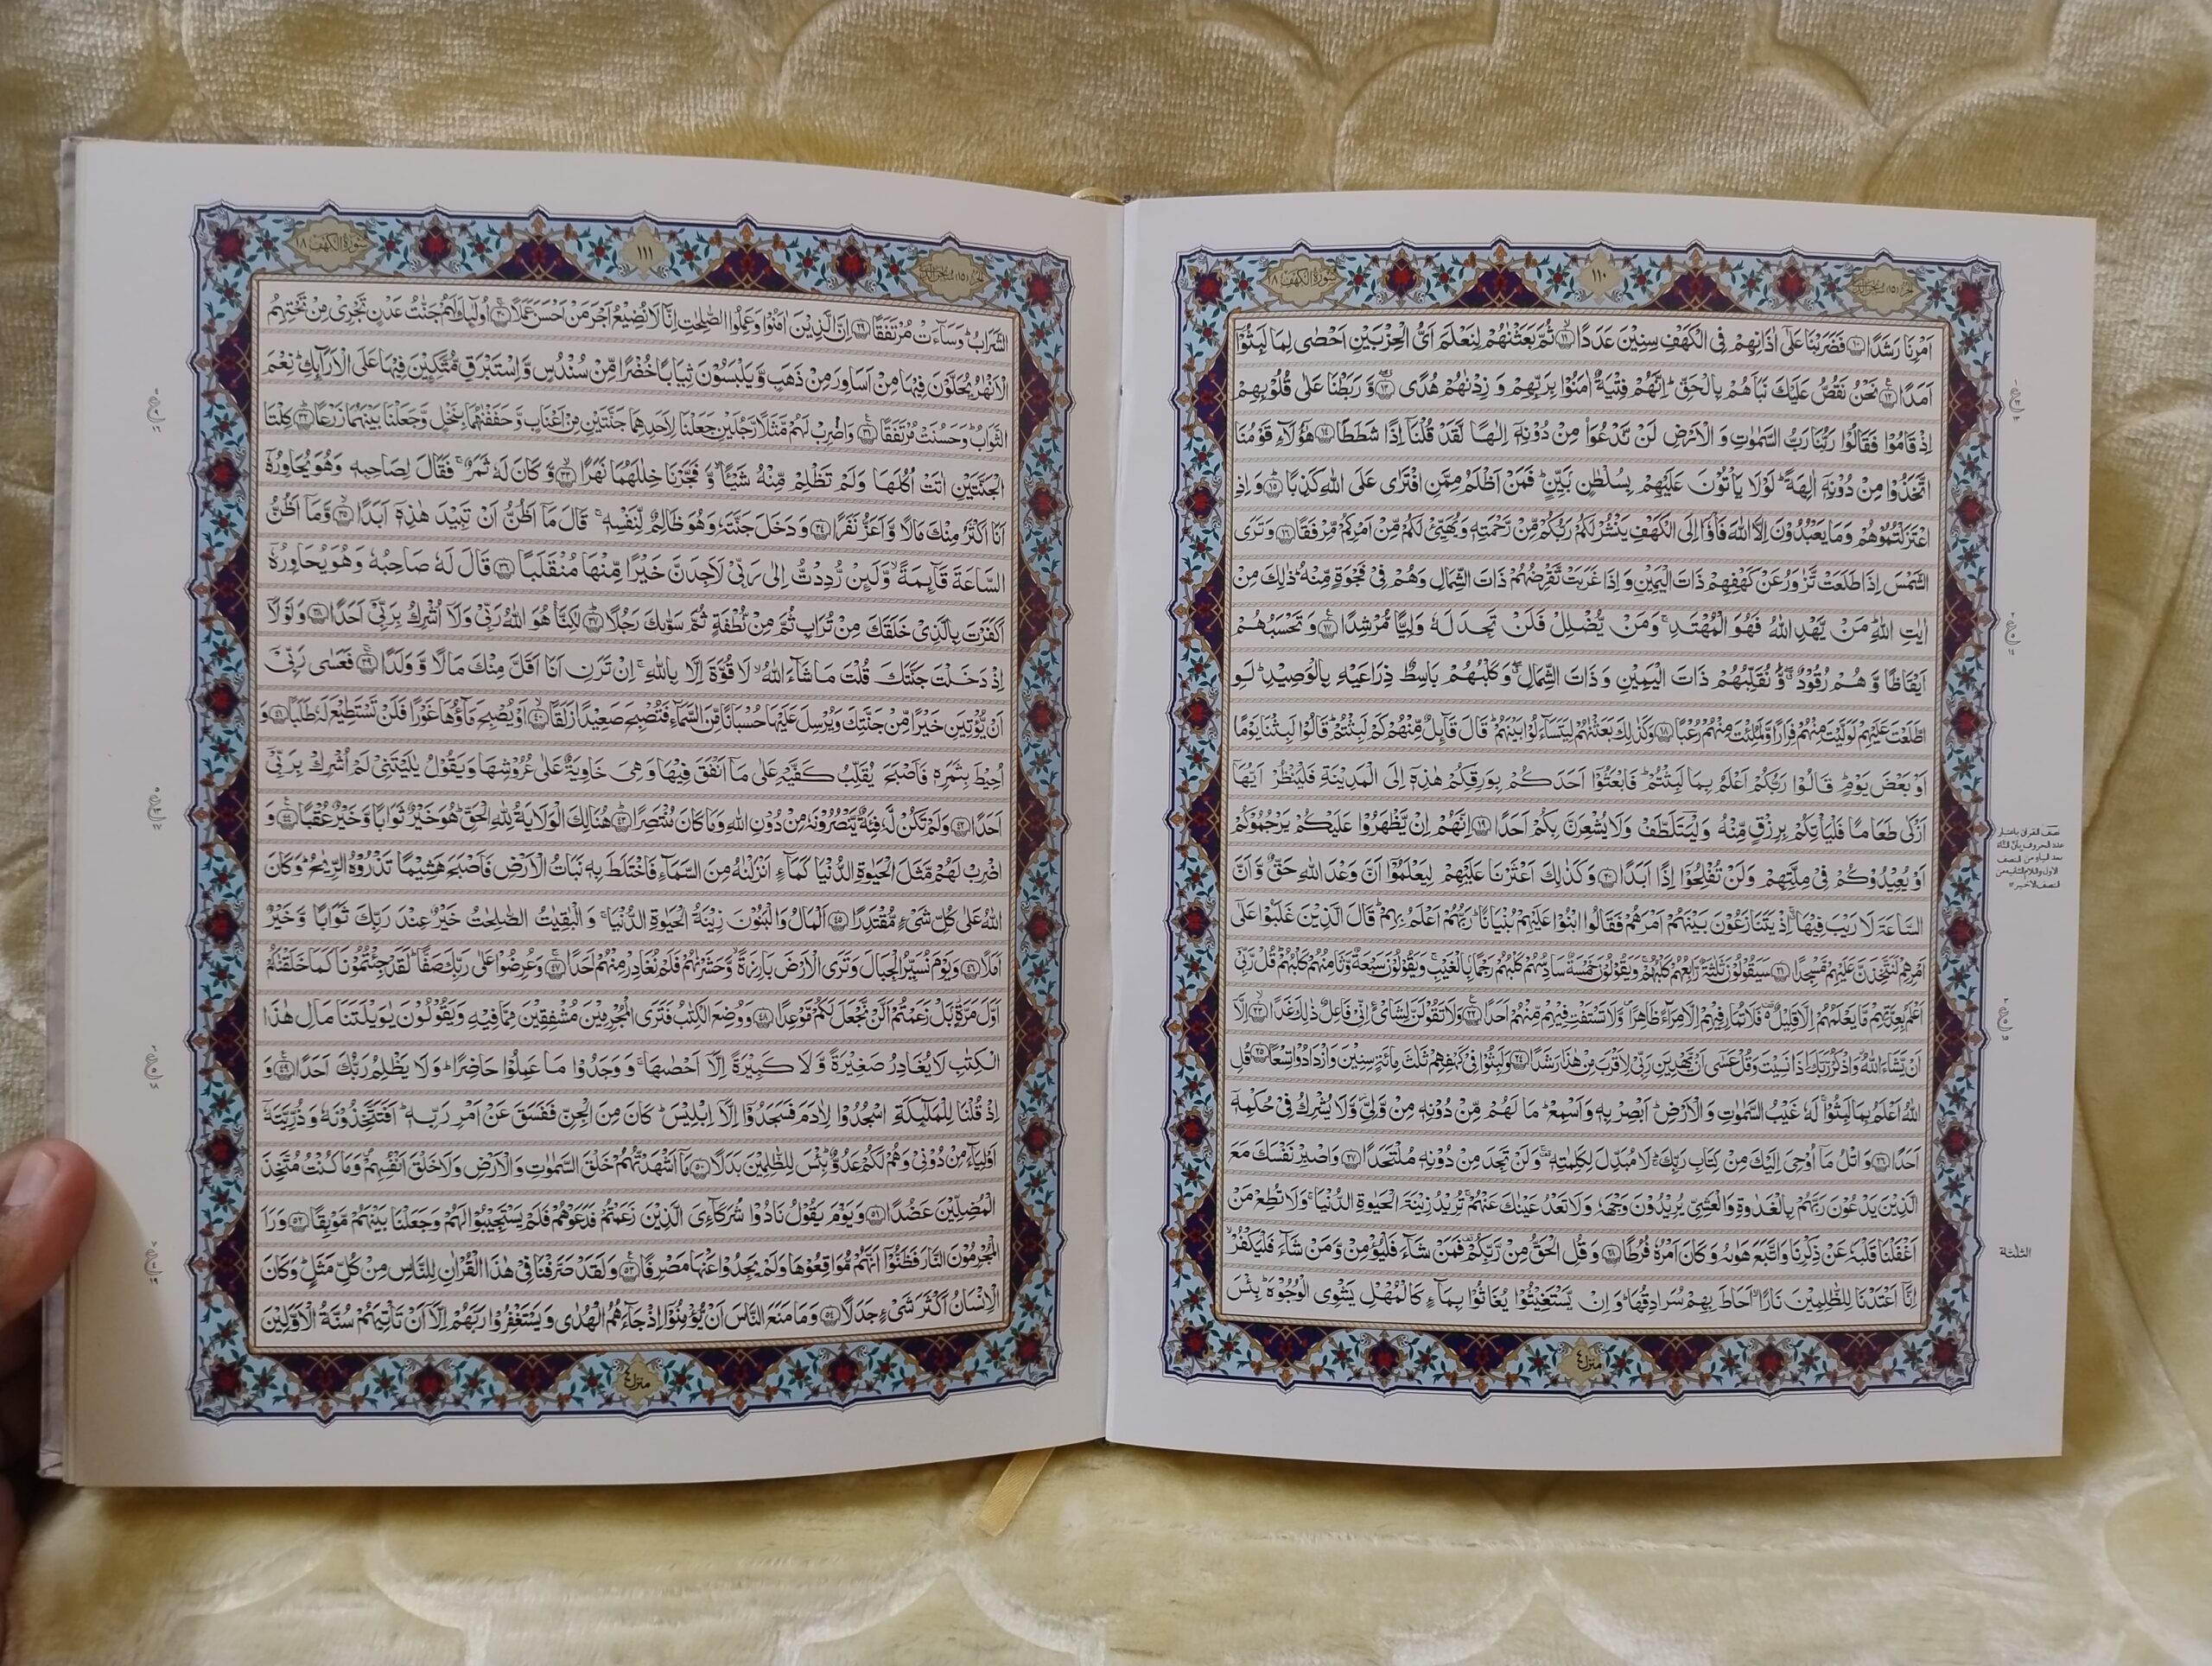 الجزء (١٥) سبحن الذی
١١٠
سُوْرَةُ الْكَهْف ١٨
اَمْرِنَا رَشَدًا ۝١٠ فَضَرَبْنَا عَلٰۤی اٰذَانِهِمْ فِی الْكَهْفِ سِنِیْنَ عَدَدًا ۝١١ ثُمَّ بَعَثْنٰهُمْ لِنَعْلَمَ اَیُّ الْحِزْبَیْنِ اَحْصٰی لِمَا لَبِثُوْۤا
اَمَدًا ۝١٢ نَحْنُ نَقُصُّ عَلَیْكَ نَبَاَهُمْ بِالْحَقِّ ؕ اِنَّهُمْ فِتْیَةٌ اٰمَنُوْا بِرَبِّهِمْ وَ زِدْنٰهُمْ هُدًی ۝١٣ وَّ رَبَطْنَا عَلٰی قُلُوْبِهِمْ
اِذْ قَامُوْا فَقَالُوْا رَبُّنَا رَبُّ السَّمٰوٰتِ وَ الْاَرْضِ لَنْ نَّدْعُوَا۠ مِنْ دُوْنِهٖۤ اِلٰهًا لَّقَدْ قُلْنَاۤ اِذًا شَطَطًا ۝١٤ هٰۤؤُلَآءِ قَوْمُنَا
اتَّخَذُوْا مِنْ دُوْنِهٖۤ اٰلِهَةً ؕ لَوْ لَا یَاْتُوْنَ عَلَیْهِمْ بِسُلْطٰنٍۭ بَیِّنٍ ؕ فَمَنْ اَظْلَمُ مِمَّنِ افْتَرٰی عَلَی اللّٰهِ كَذِبًا ۝١٥ وَ اِذِ
اعْتَزَلْتُمُوْهُمْ وَ مَا یَعْبُدُوْنَ اِلَّا اللّٰهَ فَاْوٗۤا اِلَی الْكَهْفِ یَنْشُرْ لَكُمْ رَبُّكُمْ مِّنْ رَّحْمَتِهٖ وَ یُهَیِّئْ لَكُمْ مِّنْ اَمْرِكُمْ مِّرْفَقًا ۝١٦ وَ تَرَی
الشَّمْسَ اِذَا طَلَعَتْ تَّزٰوَرُ عَنْ كَهْفِهِمْ ذَاتَ الْیَمِیْنِ وَ اِذَا غَرَبَتْ تَّقْرِضُهُمْ ذَاتَ الشِّمَالِ وَ هُمْ فِیْ فَجْوَةٍ مِّنْهُ ؕ ذٰلِكَ مِنْ
اٰیٰتِ اللّٰهِ ؕ مَنْ یَّهْدِ اللّٰهُ فَهُوَ الْمُهْتَدِ ۚ وَ مَنْ یُّضْلِلْ فَلَنْ تَجِدَ لَهٗ وَلِیًّا مُّرْشِدًا ۝١٧ وَ تَحْسَبُهُمْ
اَیْقَاظًا وَّ هُمْ رُقُوْدٌ ۖۗ وَّ نُقَلِّبُهُمْ ذَاتَ الْیَمِیْنِ وَ ذَاتَ الشِّمَالِ ۖۗ وَ كَلْبُهُمْ بَاسِطٌ ذِرَاعَیْهِ بِالْوَصِیْدِ ؕ لَوِ
اطَّلَعْتَ عَلَیْهِمْ لَوَلَّیْتَ مِنْهُمْ فِرَارًا وَّ لَمُلِئْتَ مِنْهُمْ رُعْبًا ۝١٨ وَ كَذٰلِكَ بَعَثْنٰهُمْ لِیَتَسَآءَلُوْا بَیْنَهُمْ ؕ قَالَ قَآئِلٌ مِّنْهُمْ كَمْ لَبِثْتُمْ ؕ قَالُوْا لَبِثْنَا یَوْمًا
اَوْ بَعْضَ یَوْمٍ ؕ قَالُوْا رَبُّكُمْ اَعْلَمُ بِمَا لَبِثْتُمْ ؕ فَابْعَثُوْۤا اَحَدَكُمْ بِوَرِقِكُمْ هٰذِهٖۤ اِلَی الْمَدِیْنَةِ فَلْیَنْظُرْ اَیُّهَاۤ
اَزْكٰی طَعَامًا فَلْیَاْتِكُمْ بِرِزْقٍ مِّنْهُ وَ لْیَتَلَطَّفْ وَ لَا یُشْعِرَنَّ بِكُمْ اَحَدًا ۝١٩ اِنَّهُمْ اِنْ یَّظْهَرُوْا عَلَیْكُمْ یَرْجُمُوْكُمْ
اَوْ یُعِیْدُوْكُمْ فِیْ مِلَّتِهِمْ وَ لَنْ تُفْلِحُوْۤا اِذًا اَبَدًا ۝٢٠ وَ كَذٰلِكَ اَعْثَرْنَا عَلَیْهِمْ لِیَعْلَمُوْۤا اَنَّ وَعْدَ اللّٰهِ حَقٌّ وَّ اَنَّ
السَّاعَةَ لَا رَیْبَ فِیْهَا ۚ اِذْ یَتَنَازَعُوْنَ بَیْنَهُمْ اَمْرَهُمْ فَقَالُوا ابْنُوْا عَلَیْهِمْ بُنْیَانًا ؕ رَبُّهُمْ اَعْلَمُ بِهِمْ ؕ قَالَ الَّذِیْنَ غَلَبُوْا عَلٰۤی
اَمْرِهِمْ لَنَتَّخِذَنَّ عَلَیْهِمْ مَّسْجِدًا ۝٢١ سَیَقُوْلُوْنَ ثَلٰثَةٌ رَّابِعُهُمْ كَلْبُهُمْ ۚ وَ یَقُوْلُوْنَ خَمْسَةٌ سَادِسُهُمْ كَلْبُهُمْ رَجْمًۢا بِالْغَیْبِ ۚ وَ یَقُوْلُوْنَ سَبْعَةٌ وَّ ثَامِنُهُمْ كَلْبُهُمْ ؕ قُلْ رَّبِّیْۤ
اَعْلَمُ بِعِدَّتِهِمْ مَّا یَعْلَمُهُمْ اِلَّا قَلِیْلٌ ۬۫ فَلَا تُمَارِ فِیْهِمْ اِلَّا مِرَآءً ظَاهِرًا ۪ وَّ لَا تَسْتَفْتِ فِیْهِمْ مِّنْهُمْ اَحَدًا ۝٢٢ وَ لَا تَقُوْلَنَّ لِشَایْءٍ اِنِّیْ فَاعِلٌ ذٰلِكَ غَدًا ۝٢٣ اِلَّاۤ
اَنْ یَّشَآءَ اللّٰهُ ؗ وَ اذْكُرْ رَّبَّكَ اِذَا نَسِیْتَ وَ قُلْ عَسٰۤی اَنْ یَّهْدِیَنِ رَبِّیْ لِاَقْرَبَ مِنْ هٰذَا رَشَدًا ۝٢٤ وَ لَبِثُوْا فِیْ كَهْفِهِمْ ثَلٰثَ مِائَةٍ سِنِیْنَ وَ ازْدَادُوْا تِسْعًا ۝٢٥ قُلِ
اللّٰهُ اَعْلَمُ بِمَا لَبِثُوْا ۚ لَهٗ غَیْبُ السَّمٰوٰتِ وَ الْاَرْضِ ؕ اَبْصِرْ بِهٖ وَ اَسْمِعْ ؕ مَا لَهُمْ مِّنْ دُوْنِهٖ مِنْ وَّلِیٍّ ؗ وَّ لَا یُشْرِكُ فِیْ حُكْمِهٖۤ
اَحَدًا ۝٢٦ وَ اتْلُ مَاۤ اُوْحِیَ اِلَیْكَ مِنْ كِتَابِ رَبِّكَ ؕۚ لَا مُبَدِّلَ لِكَلِمٰتِهٖ ۫ۚ وَ لَنْ تَجِدَ مِنْ دُوْنِهٖ مُلْتَحَدًا ۝٢٧ وَ اصْبِرْ نَفْسَكَ مَعَ
الَّذِیْنَ یَدْعُوْنَ رَبَّهُمْ بِالْغَدٰوةِ وَ الْعَشِیِّ یُرِیْدُوْنَ وَجْهَهٗ وَ لَا تَعْدُ عَیْنٰكَ عَنْهُمْ ۚ تُرِیْدُ زِیْنَةَ الْحَیٰوةِ الدُّنْیَا ۚ وَ لَا تُطِعْ مَنْ
اَغْفَلْنَا قَلْبَهٗ عَنْ ذِكْرِنَا وَ اتَّبَعَ هَوٰىهُ وَ كَانَ اَمْرُهٗ فُرُطًا ۝٢٨ وَ قُلِ الْحَقُّ مِنْ رَّبِّكُمْ ۫ فَمَنْ شَآءَ فَلْیُؤْمِنْ وَّ مَنْ شَآءَ فَلْیَكْفُرْ ۙ
اِنَّاۤ اَعْتَدْنَا لِلظّٰلِمِیْنَ نَارًا ۙ اَحَاطَ بِهِمْ سُرَادِقُهَا ؕ وَ اِنْ یَّسْتَغِیْثُوْا یُغَاثُوْا بِمَآءٍ كَالْمُهْلِ یَشْوِی الْوُجُوْهَ ؕ بِئْسَ
منزل ٤
نصف القرآن باعتبار
عدد الحروف بأن التاء
بعد الیاء من النصف
الأول واللام الثانیة من
النصف الأخیر ١٢
الثلٰثة
الجزء (١٥) سبحن الذی
١١١
سُوْرَةُ الْكَهْف ١٨
الشَّرَابُ ؕ وَ سَآءَتْ مُرْتَفَقًا ۝٢٩ اِنَّ الَّذِیْنَ اٰمَنُوْا وَ عَمِلُوا الصّٰلِحٰتِ اِنَّا لَا نُضِیْعُ اَجْرَ مَنْ اَحْسَنَ عَمَلًا ۝٣٠ اُولٰٓئِكَ لَهُمْ جَنّٰتُ عَدْنٍ تَجْرِیْ مِنْ تَحْتِهِمُ
الْاَنْهٰرُ یُحَلَّوْنَ فِیْهَا مِنْ اَسَاوِرَ مِنْ ذَهَبٍ وَّ یَلْبَسُوْنَ ثِیَابًا خُضْرًا مِّنْ سُنْدُسٍ وَّ اِسْتَبْرَقٍ مُّتَّكِـِٕیْنَ فِیْهَا عَلَی الْاَرَآئِكِ ؕ نِعْمَ
الثَّوَابُ ؕ وَ حَسُنَتْ مُرْتَفَقًا ۝٣١ وَ اضْرِبْ لَهُمْ مَّثَلًا رَّجُلَیْنِ جَعَلْنَا لِاَحَدِهِمَا جَنَّتَیْنِ مِنْ اَعْنَابٍ وَّ حَفَفْنٰهُمَا بِنَخْلٍ وَّ جَعَلْنَا بَیْنَهُمَا زَرْعًا ۝٣٢ كِلْتَا
الْجَنَّتَیْنِ اٰتَتْ اُكُلَهَا وَ لَمْ تَظْلِمْ مِّنْهُ شَیْـًٔا ۙ وَّ فَجَّرْنَا خِلٰلَهُمَا نَهَرًا ۝٣٣ وَّ كَانَ لَهٗ ثَمَرٌ ۚ فَقَالَ لِصَاحِبِهٖ وَ هُوَ یُحَاوِرُهٗۤ
اَنَا اَكْثَرُ مِنْكَ مَالًا وَّ اَعَزُّ نَفَرًا ۝٣٤ وَ دَخَلَ جَنَّتَهٗ وَ هُوَ ظَالِمٌ لِّنَفْسِهٖ ۚ قَالَ مَاۤ اَظُنُّ اَنْ تَبِیْدَ هٰذِهٖۤ اَبَدًا ۝٣٥ وَّ مَاۤ اَظُنُّ
السَّاعَةَ قَآئِمَةً ۙ وَّ لَىِٕنْ رُّدِدْتُّ اِلٰی رَبِّیْ لَاَجِدَنَّ خَیْرًا مِّنْهَا مُنْقَلَبًا ۝٣٦ قَالَ لَهٗ صَاحِبُهٗ وَ هُوَ یُحَاوِرُهٗۤ
اَكَفَرْتَ بِالَّذِیْ خَلَقَكَ مِنْ تُرَابٍ ثُمَّ مِنْ نُّطْفَةٍ ثُمَّ سَوّٰىكَ رَجُلًا ۝٣٧ لٰكِنَّاۡ هُوَ اللّٰهُ رَبِّیْ وَ لَاۤ اُشْرِكُ بِرَبِّیْۤ اَحَدًا ۝٣٨ وَ لَوْ لَاۤ
اِذْ دَخَلْتَ جَنَّتَكَ قُلْتَ مَا شَآءَ اللّٰهُ ۙ لَا قُوَّةَ اِلَّا بِاللّٰهِ ۚ اِنْ تَرَنِ اَنَا اَقَلَّ مِنْكَ مَالًا وَّ وَلَدًا ۝٣٩ فَعَسٰی رَبِّیْۤ
اَنْ یُّؤْتِیَنِ خَیْرًا مِّنْ جَنَّتِكَ وَ یُرْسِلَ عَلَیْهَا حُسْبَانًا مِّنَ السَّمَآءِ فَتُصْبِحَ صَعِیْدًا زَلَقًا ۝٤٠ اَوْ یُصْبِحَ مَآؤُهَا غَوْرًا فَلَنْ تَسْتَطِیْعَ لَهٗ طَلَبًا ۝٤١ وَ
اُحِیْطَ بِثَمَرِهٖ فَاَصْبَحَ یُقَلِّبُ كَفَّیْهِ عَلٰی مَاۤ اَنْفَقَ فِیْهَا وَ هِیَ خَاوِیَةٌ عَلٰی عُرُوْشِهَا وَ یَقُوْلُ یٰلَیْتَنِیْ لَمْ اُشْرِكْ بِرَبِّیْۤ
اَحَدًا ۝٤٢ وَ لَمْ تَكُنْ لَّهٗ فِئَةٌ یَّنْصُرُوْنَهٗ مِنْ دُوْنِ اللّٰهِ وَ مَا كَانَ مُنْتَصِرًا ۝٤٣ هُنَالِكَ الْوَلَایَةُ لِلّٰهِ الْحَقِّ ؕ هُوَ خَیْرٌ ثَوَابًا وَّ خَیْرٌ عُقْبًا ۝٤٤ وَ
اضْرِبْ لَهُمْ مَّثَلَ الْحَیٰوةِ الدُّنْیَا كَمَآءٍ اَنْزَلْنٰهُ مِنَ السَّمَآءِ فَاخْتَلَطَ بِهٖ نَبَاتُ الْاَرْضِ فَاَصْبَحَ هَشِیْمًا تَذْرُوْهُ الرِّیٰحُ ؕ وَ كَانَ
اللّٰهُ عَلٰی كُلِّ شَیْءٍ مُّقْتَدِرًا ۝٤٥ اَلْمَالُ وَ الْبَنُوْنَ زِیْنَةُ الْحَیٰوةِ الدُّنْیَا ۚ وَ الْبٰقِیٰتُ الصّٰلِحٰتُ خَیْرٌ عِنْدَ رَبِّكَ ثَوَابًا وَّ خَیْرٌ
اَمَلًا ۝٤٦ وَ یَوْمَ نُسَیِّرُ الْجِبَالَ وَ تَرَی الْاَرْضَ بَارِزَةً ۙ وَّ حَشَرْنٰهُمْ فَلَمْ نُغَادِرْ مِنْهُمْ اَحَدًا ۝٤٧ وَ عُرِضُوْا عَلٰی رَبِّكَ صَفًّا ؕ لَقَدْ جِئْتُمُوْنَا كَمَا خَلَقْنٰكُمْ
اَوَّلَ مَرَّةٍۭ ؗ بَلْ زَعَمْتُمْ اَلَّنْ نَّجْعَلَ لَكُمْ مَّوْعِدًا ۝٤٨ وَ وُضِعَ الْكِتٰبُ فَتَرَی الْمُجْرِمِیْنَ مُشْفِقِیْنَ مِمَّا فِیْهِ وَ یَقُوْلُوْنَ یٰوَیْلَتَنَا مَالِ هٰذَا
الْكِتٰبِ لَا یُغَادِرُ صَغِیْرَةً وَّ لَا كَبِیْرَةً اِلَّاۤ اَحْصٰىهَا ۚ وَ وَجَدُوْا مَا عَمِلُوْا حَاضِرًا ؕ وَ لَا یَظْلِمُ رَبُّكَ اَحَدًا ۝٤٩ وَ
اِذْ قُلْنَا لِلْمَلٰٓئِكَةِ اسْجُدُوْا لِاٰدَمَ فَسَجَدُوْۤا اِلَّاۤ اِبْلِیْسَ ؕ كَانَ مِنَ الْجِنِّ فَفَسَقَ عَنْ اَمْرِ رَبِّهٖ ؕ اَفَتَتَّخِذُوْنَهٗ وَ ذُرِّیَّتَهٗۤ
اَوْلِیَآءَ مِنْ دُوْنِیْ وَ هُمْ لَكُمْ عَدُوٌّ ؕ بِئْسَ لِلظّٰلِمِیْنَ بَدَلًا ۝٥٠ مَاۤ اَشْهَدْتُّهُمْ خَلْقَ السَّمٰوٰتِ وَ الْاَرْضِ وَ لَا خَلْقَ اَنْفُسِهِمْ ۪ وَ مَا كُنْتُ مُتَّخِذَ
الْمُضِلِّیْنَ عَضُدًا ۝٥١ وَ یَوْمَ یَقُوْلُ نَادُوْا شُرَكَآءِیَ الَّذِیْنَ زَعَمْتُمْ فَدَعَوْهُمْ فَلَمْ یَسْتَجِیْبُوْا لَهُمْ وَ جَعَلْنَا بَیْنَهُمْ مَّوْبِقًا ۝٥٢ وَ رَاَ
الْمُجْرِمُوْنَ النَّارَ فَظَنُّوْۤا اَنَّهُمْ مُّوَاقِعُوْهَا وَ لَمْ یَجِدُوْا عَنْهَا مَصْرِفًا ۝٥٣ وَ لَقَدْ صَرَّفْنَا فِیْ هٰذَا الْقُرْاٰنِ لِلنَّاسِ مِنْ كُلِّ مَثَلٍ ؕ وَ كَانَ
الْاِنْسَانُ اَكْثَرَ شَیْءٍ جَدَلًا ۝٥٤ وَ مَا مَنَعَ النَّاسَ اَنْ یُّؤْمِنُوْۤا اِذْ جَآءَهُمُ الْهُدٰی وَ یَسْتَغْفِرُوْا رَبَّهُمْ اِلَّاۤ اَنْ تَاْتِیَهُمْ سُنَّةُ الْاَوَّلِیْنَ
منزل ٤